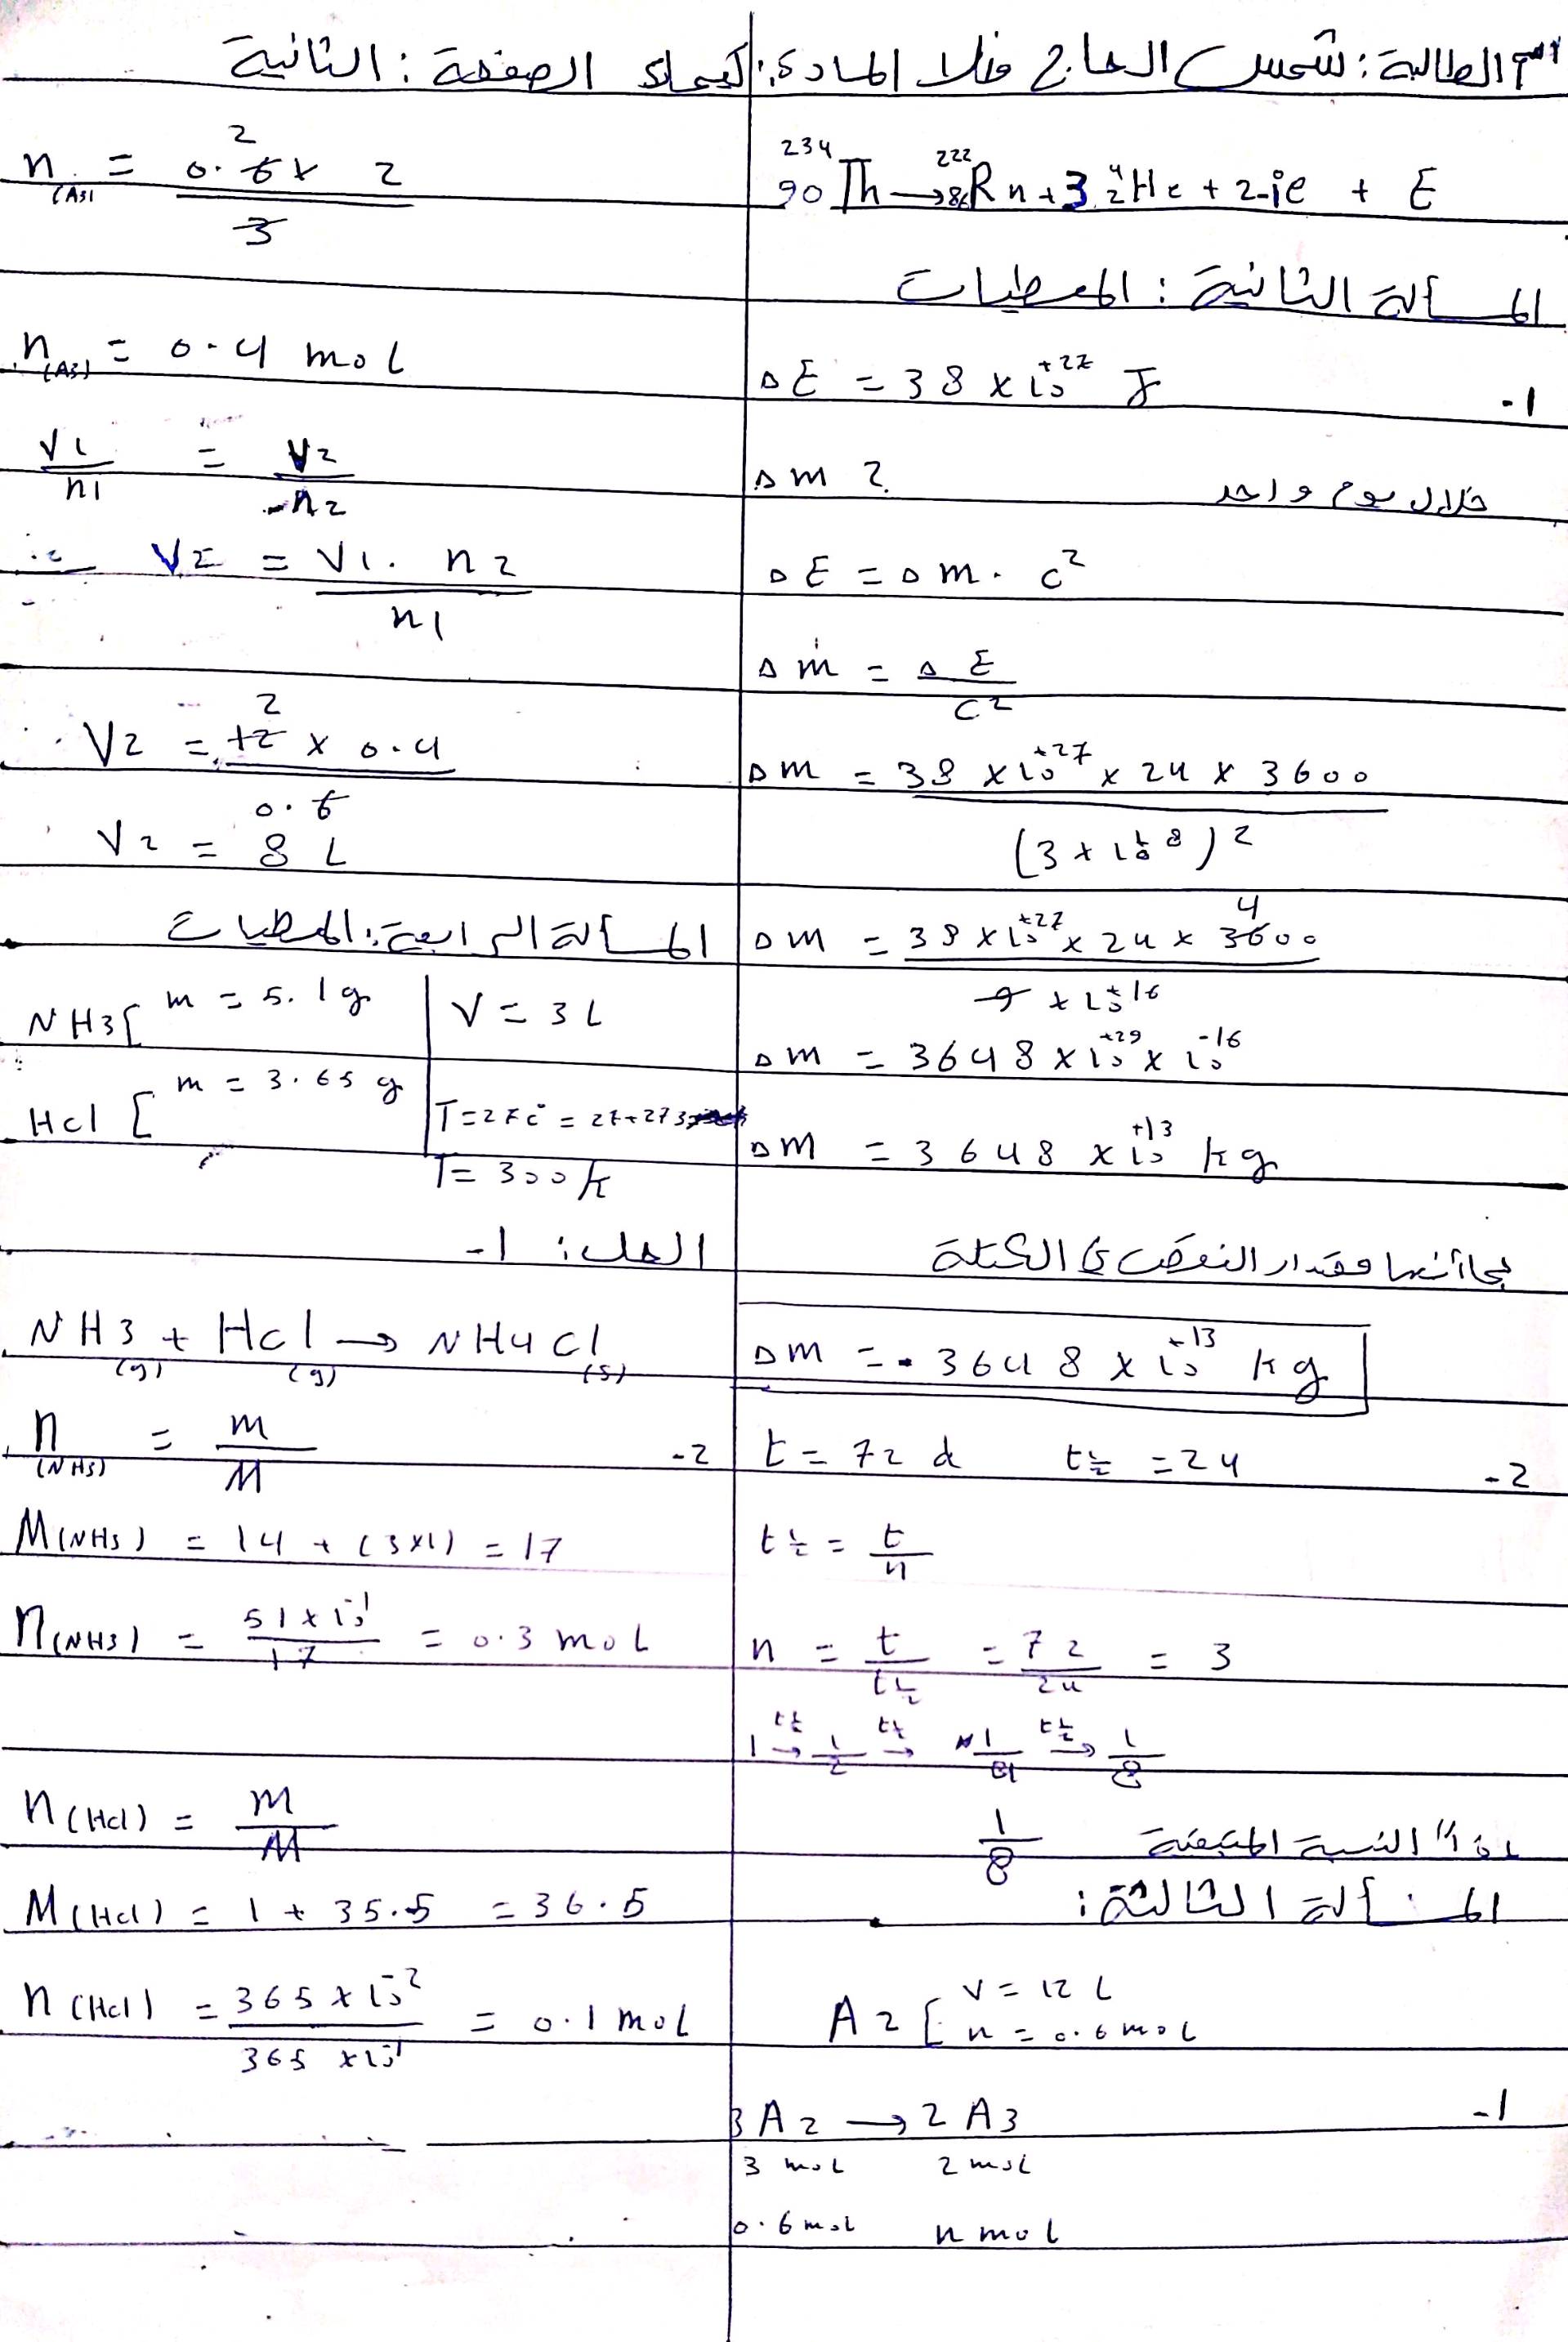 اسم الطالبة: شمس الحاج المادة: كيمياء الصفحة: الثانية
²³⁴₉₀Th → ²²²₈₆Rn + 3 ⁴₂He + 2 ₋₁e + E
المسألة الثانية: المعطيات
ΔE = 38 × 10⁺²⁷ J -1
Δm ? خلال يوم واحد
ΔE = Δm . c²
Δm = ΔE / c²
Δm = 38 × 10⁺²⁷ × 24 × 3600 / (3 × 10⁺⁸)²
Δm = 38 × 10⁺²⁷ × 24 × 3600 4 / 9 × 10⁺¹⁶
Δm = 3648 × 10⁺²⁹ × 10⁻¹⁶
Δm = 3648 × 10⁺¹³ kg
بما أنها مقدار النقص في الكتلة
Δm = - 3648 × 10⁺¹³ kg
t = 72 d t½ = 24 -2
t½ = t / n
n = t / t½ = 72 / 24 = 3
1 →(t½) 1/2 →(t½) 1/4 →(t½) 1/8
النسبة المتبقية 1/8
المسألة الثالثة:
A2 [ V = 12 L
n = 0.6 mol
3A2 → 2A3 -1
3 mol 2 mol
0.6 mol n mol
n(A3) = 0.6 2 × 2 / 3
n(A3) = 0.4 mol
V1 / n1 = V2 / n2
V2 = V1 . n2 / n1
V2 = 12 2 × 0.4 / 0.6
V2 = 8 L
المسألة الرابعة: المعطيات
NH3 [ m = 5.1 g V = 3 L
HCl [ m = 3.65 g T = 27 c° = 27+273
T = 300 k
الحل: 1-
NH3(g) + HCl(g) → NH4Cl(s)
n(NH3) = m / M -2
M(NH3) = 14 + (3×1) = 17
n(NH3) = 51 × 10⁻¹ / 17 = 0.3 mol
n(HCl) = m / M
M(HCl) = 1 + 35.5 = 36.5
n(HCl) = 365 × 10⁻² / 365 × 10⁻¹ = 0.1 mol